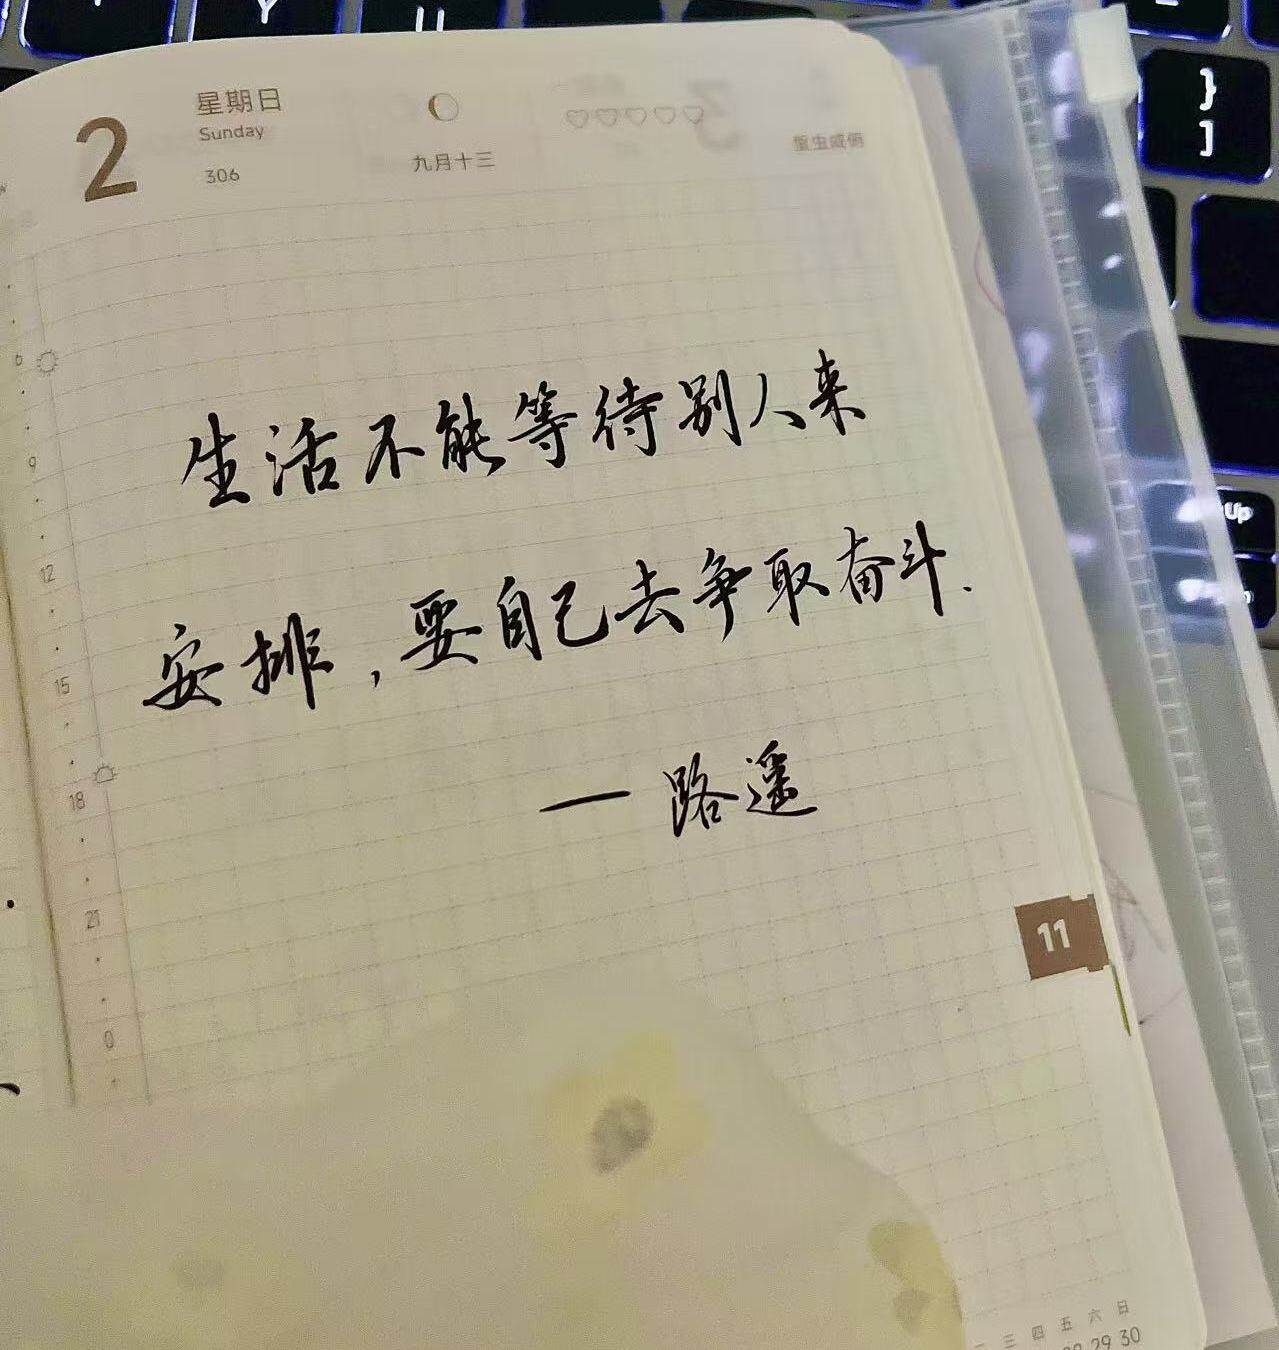 2
星期日
Sunday
306
九月十三
生活不能等待别人来
安排,要自己去争取奋斗.
— 路遥
6
9
12
15
18
21
0
11
三 四 五 六 日
29 30
Y
U
}
]
Up